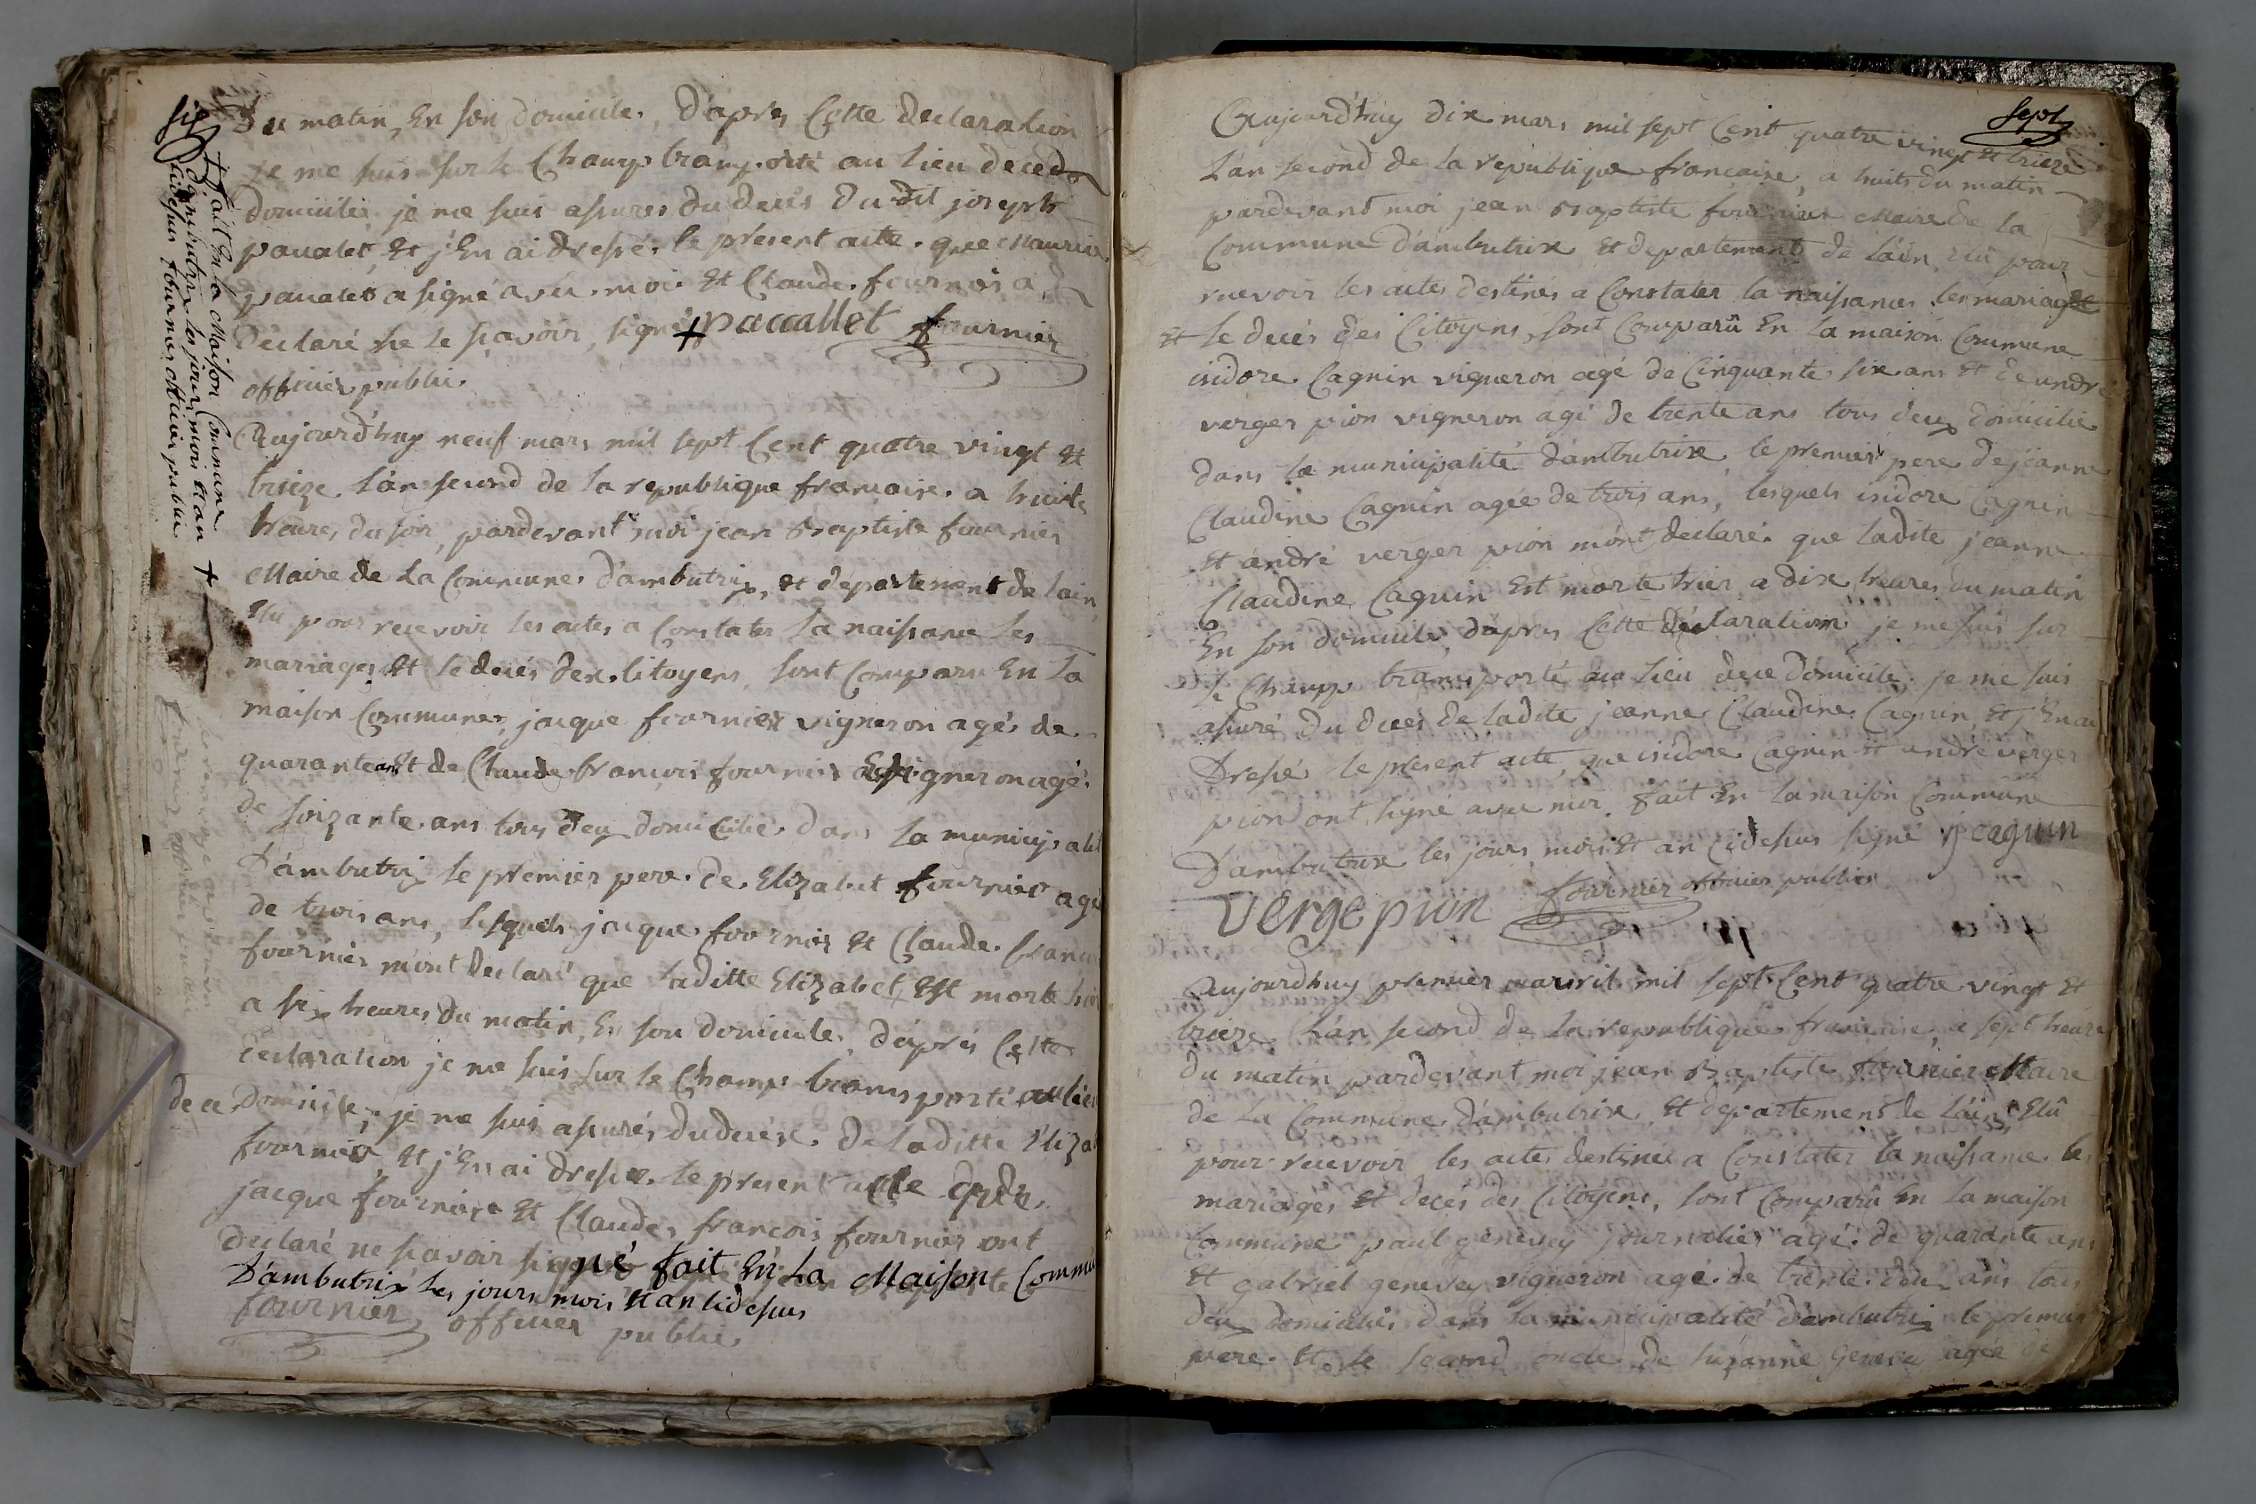 Du matin, En son domicile, D'apres Cette Declaration
je me suis sur le Champ transporté au lieu de ced
domicile je me suis assures du deces Du dit joseph
pauales Et j'En ai dressé le present acte que Maurice
pauales a signé avec moi Et Claude fournier a
Declaré ne le sçavoir, signé + paccallet fournier
officier public
+ fait En la Maison Commune
D'ambutrix les jours mois et an
cidessus fournier officier public +
Aujourd'huy neuf mars mil sept Cent quatre vingt Et
trieze L'an second de la republique francaise a huits
heures du soir, pardevant moi jean Baptiste fournier
Maire de La Commune D'ambutrix, Et departement de lain
Elu pour recevoir les actes a Constater la naissance les
mariages Et le deces des Citoyens, sont Comparu En la
maison Commune, jacque fournier vigneron agé de
quarante ans Et de Claude francois fournier vigneron agé
de soizante ans tous deux domicilié dans la municipalit
D'ambutrix le premier pere de Elizabet fournier agé
de trois ans, lesquels jacque fournier Et Claude francoi
fournier m'ont Declaré que laditte Elizabet Est morte hier
a six heures du matin, En son domicile, D'aprés Cette
Declaration je me suis sur le Champ transporté au lieu
de ce Domicile, je ne suis assurés du decés de laditte Elizab
fournier, Et j'En ai dresser le present acte que
jacque fournier Et Claude francois fournier ont
Declaré ne sçavoir signé fait En La Maison Commu
D'ambutrix les jours mois et an cidessus
fournier officier public
sept
Aujourd'huy Dix mars mil sept Cent quatre vingt Et trieze
L'an second de la republique francaise, a huits du matin
pardevant moi jean Baptiste fournier Maire De la
Commune D'ambutrix Et departement de L'ain, élû pour
recevoir les actes destinés a Constater la naissances les mariages
Et le decés des Citoyens, sont Comparû En la maison Commune
isidore Cagnin vigneron agé de Cinquante six ans Et de andré
verger pion vigneron agé de trente ans tous deux domicilié
dans la municipalité D'ambutrix le premier pere de jeanne
Claudine Cagnin agée de trois ans, lesquels isidore Cagnin
Et andré verger pion m'ont declaré que ladite jeanne
Claudine Cagnin Est morte hier a dix heures du matin
En son domicile, D'apres Cette Declaration je me suis sur
le Champ transporté au lieu de ce domicile, je me suis
assuré du decés de ladite jeanne Claudine Cagnin Et j'En ai
Dressé le present acte, que isidore Cagnin Et andré verger
pion ont signé avec moi, fait En la maison Commune
D'ambutrix les jours mois Et an cidessus signé jcagnin
vergepion fournier officier public
Aujourd'huy premier avril mil sept Cent quatre vingt Et
trieze L'an second de la republique francaise, a sept heure
du matin pardevant moi jean Baptiste fournier Maire
de La Commune D'ambutrix, Et departement de L'ain Elû
pour recevoir les actes destinés a Constater la naissance les
mariages Et decés des Citoyens, sont Comparû En la maison
Commune paul genevey journalier agé de quarante ans
Et gabriel genevey vigneron agé de trente deux ans tous
deux domiciliés dans la municipalité D'ambutrix le premier
pere Et le second oncle de suzanne Genevey agée de